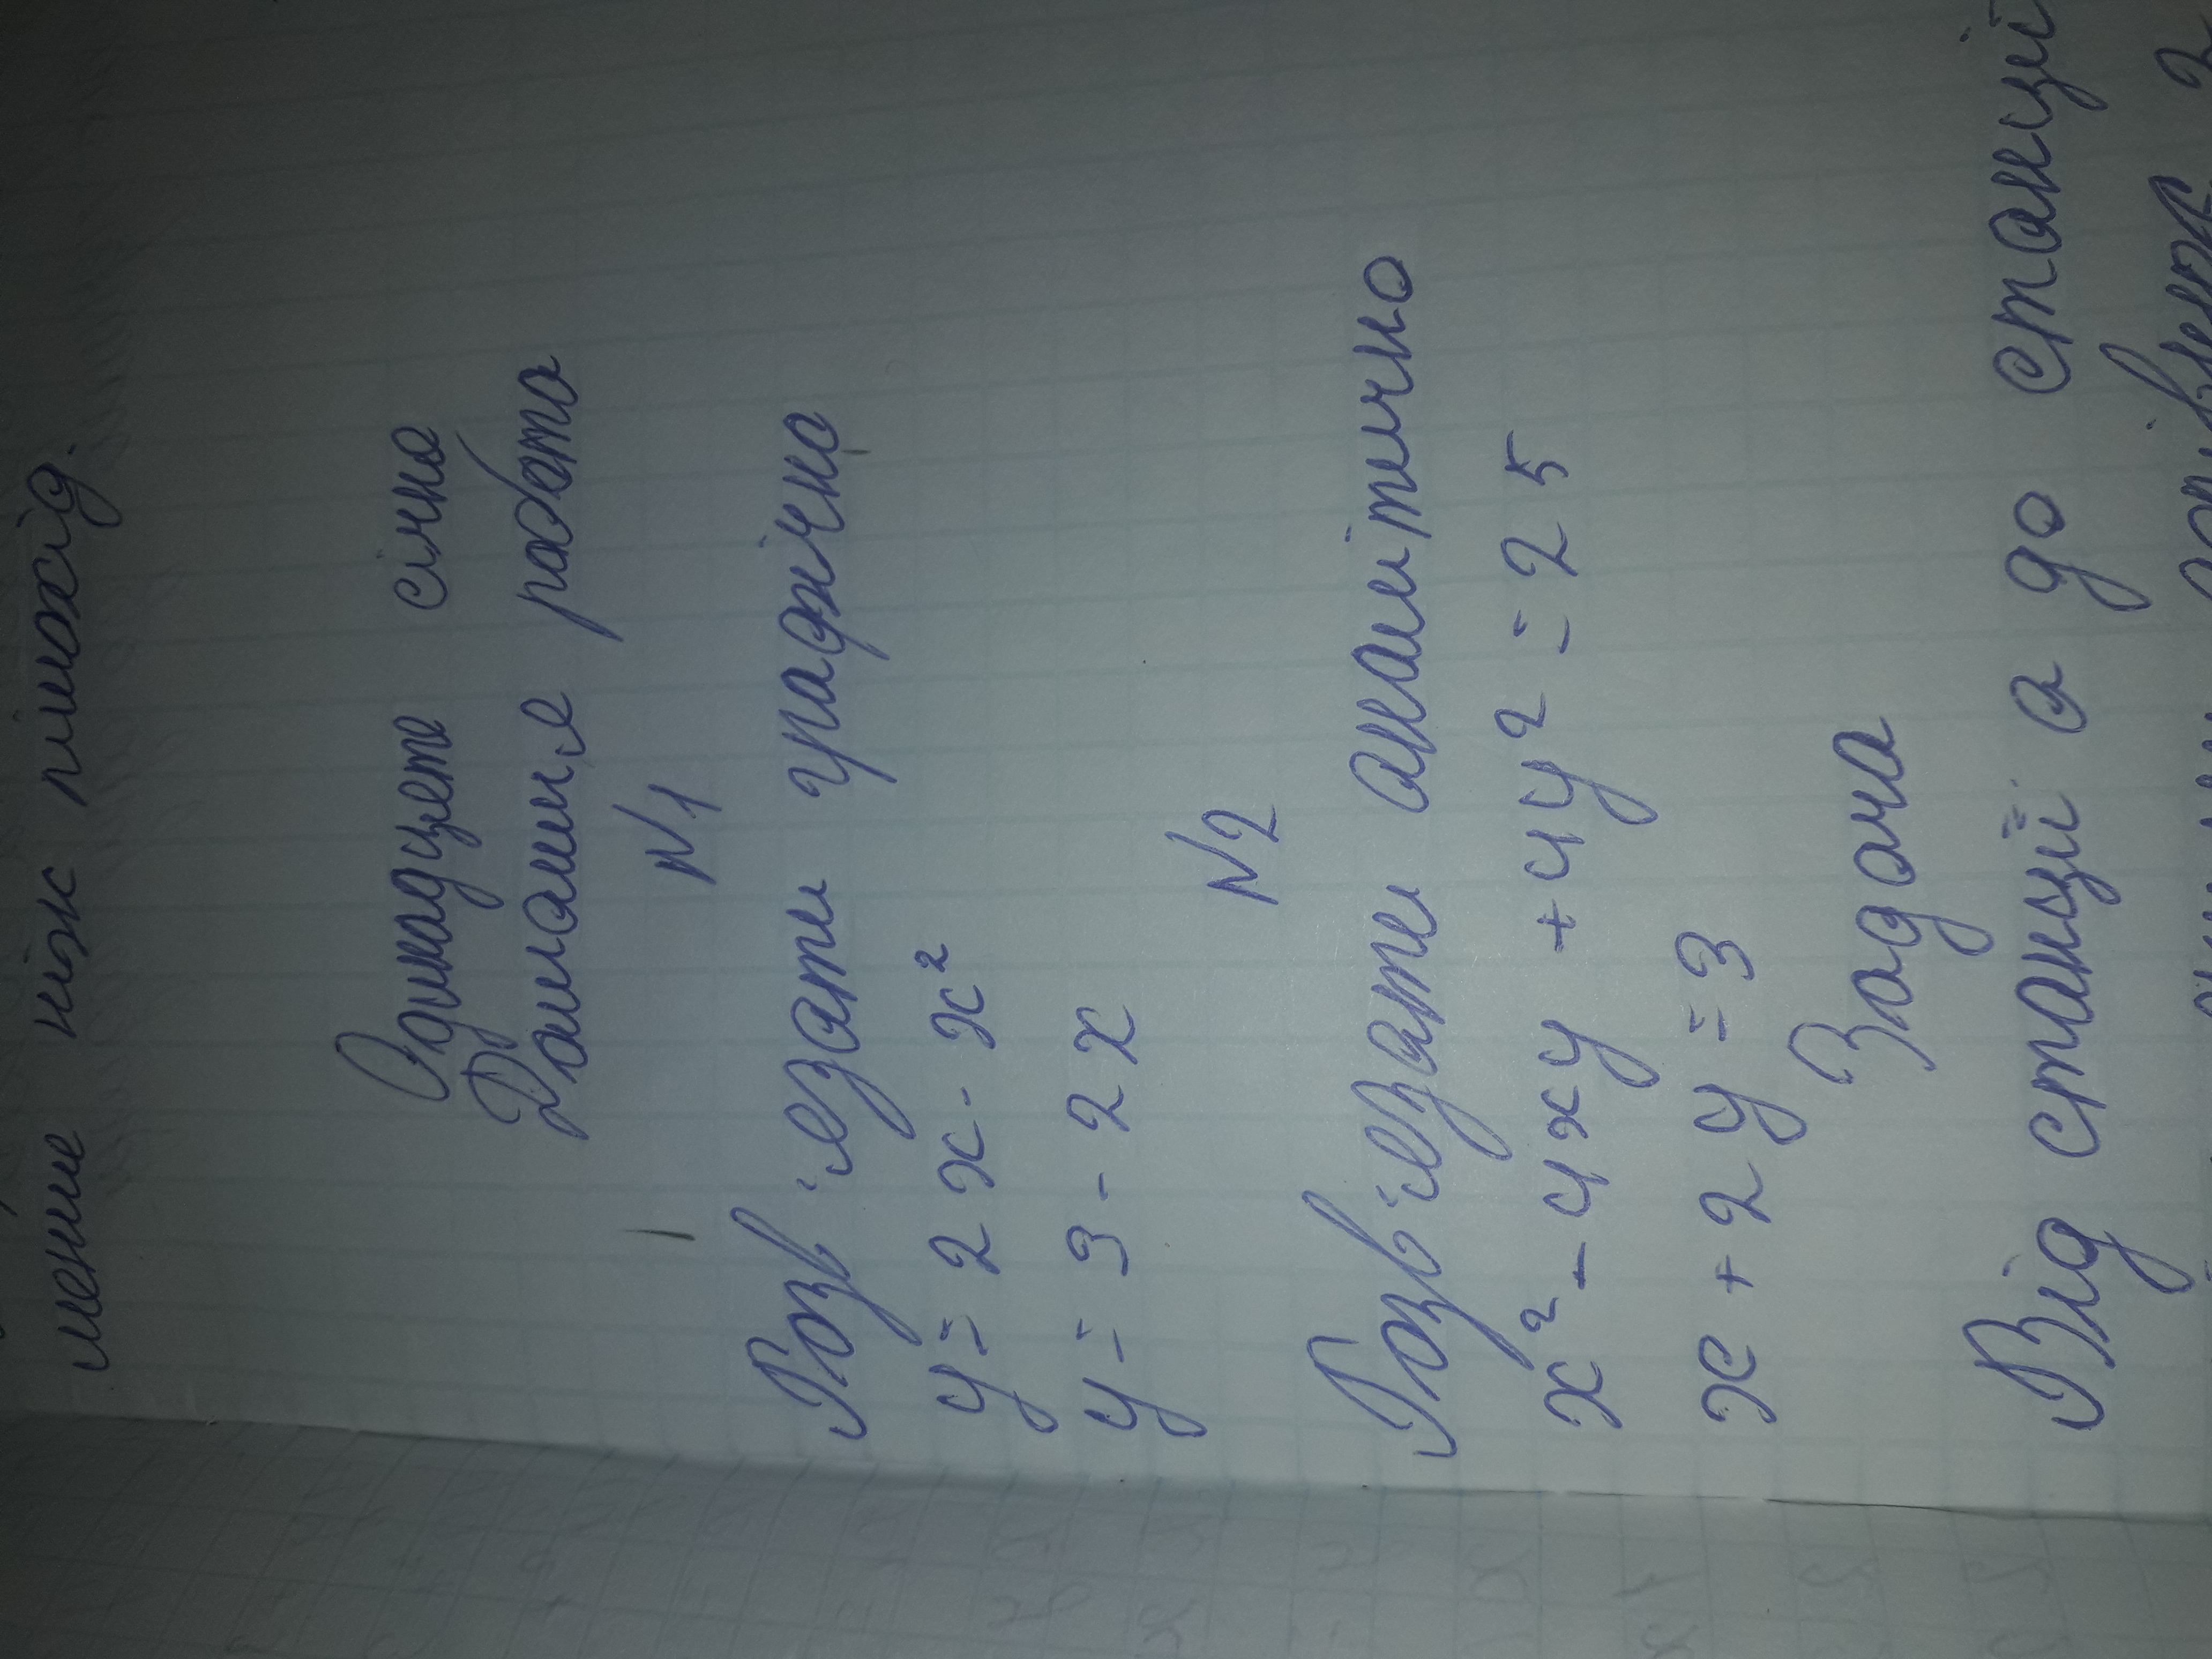 менше ніж пішохід.
Одинадцяте січня
Домашня робота
N1
Розв'язати графічно
y = 2x - x²
y = 3 - 2x
N2
Розв'язати аналітично
x² - 4xy + 4y² = 25
x + 2y = 3
Задача
Від станції а до станції